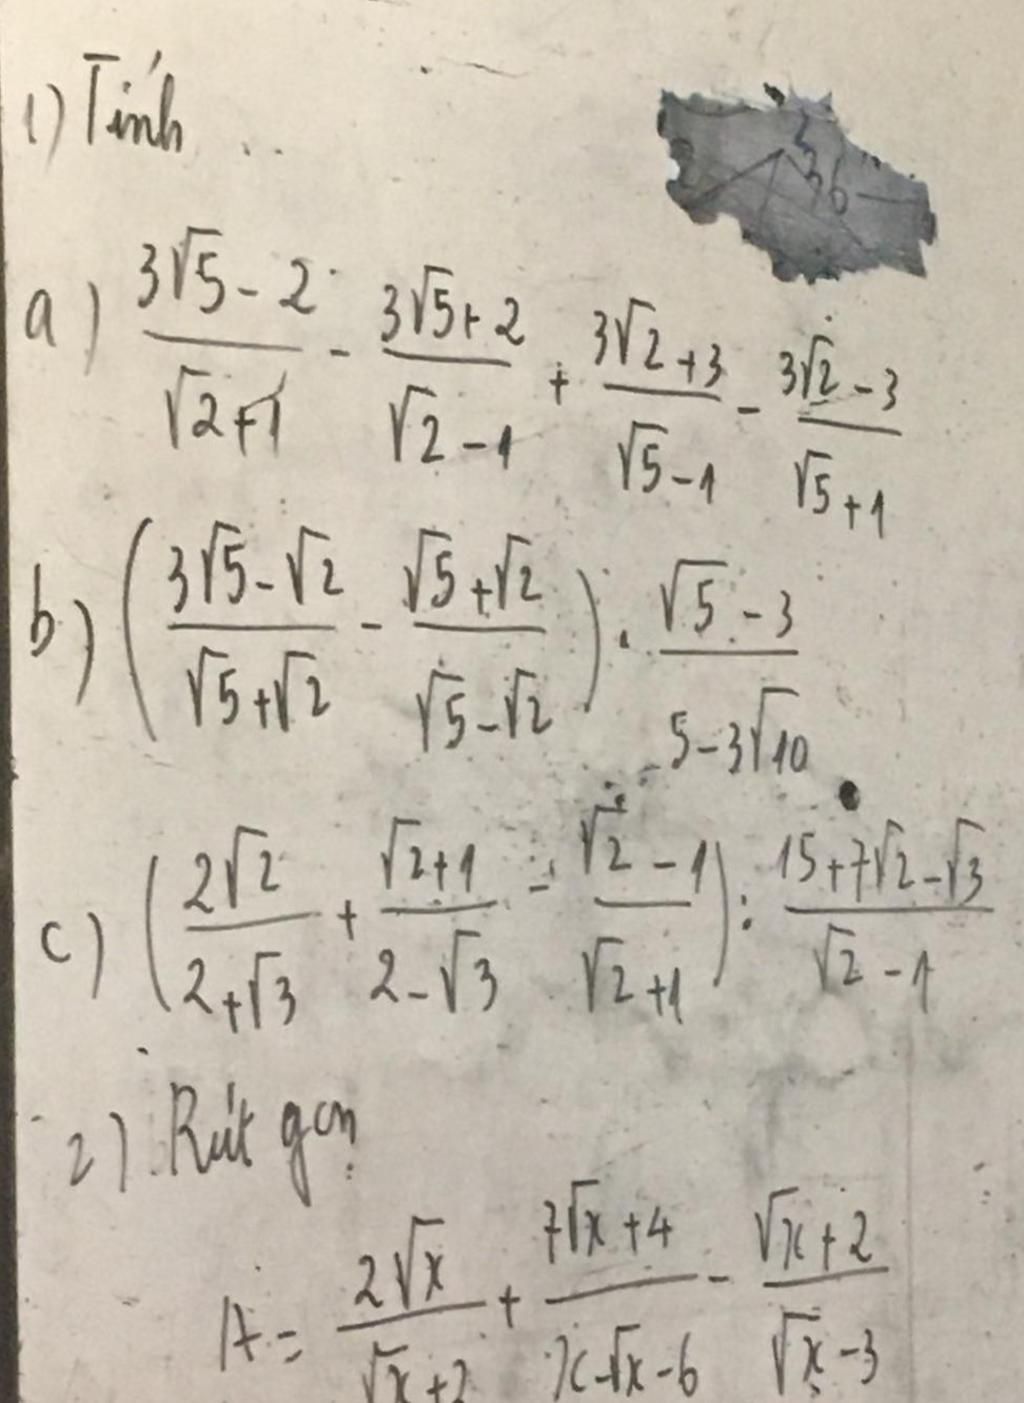 1) Tính
36
a) (3√5 - 2)/(√2 + 1) - (3√5 + 2)/(√2 - 1) + (3√2 + 3)/(√5 - 1) - (3√2 - 3)/(√5 + 1)
b) ((3√5 - √2)/(√5 + √2) - (√5 + √2)/(√5 - √2)) . (√5 - 3)/(5 - 3√10)
c) ((2√2)/(2 + √3) + (√2 + 1)/(2 - √3) - (√2 - 1)/(√2 + 1)) : (15 + 7√2 - √3)/(√2 - 1)
2) Rút gọn
A = (2√x)/(√x + 2) + (7√x + 4)/(x - √x - 6) - (√x + 2)/(√x - 3)